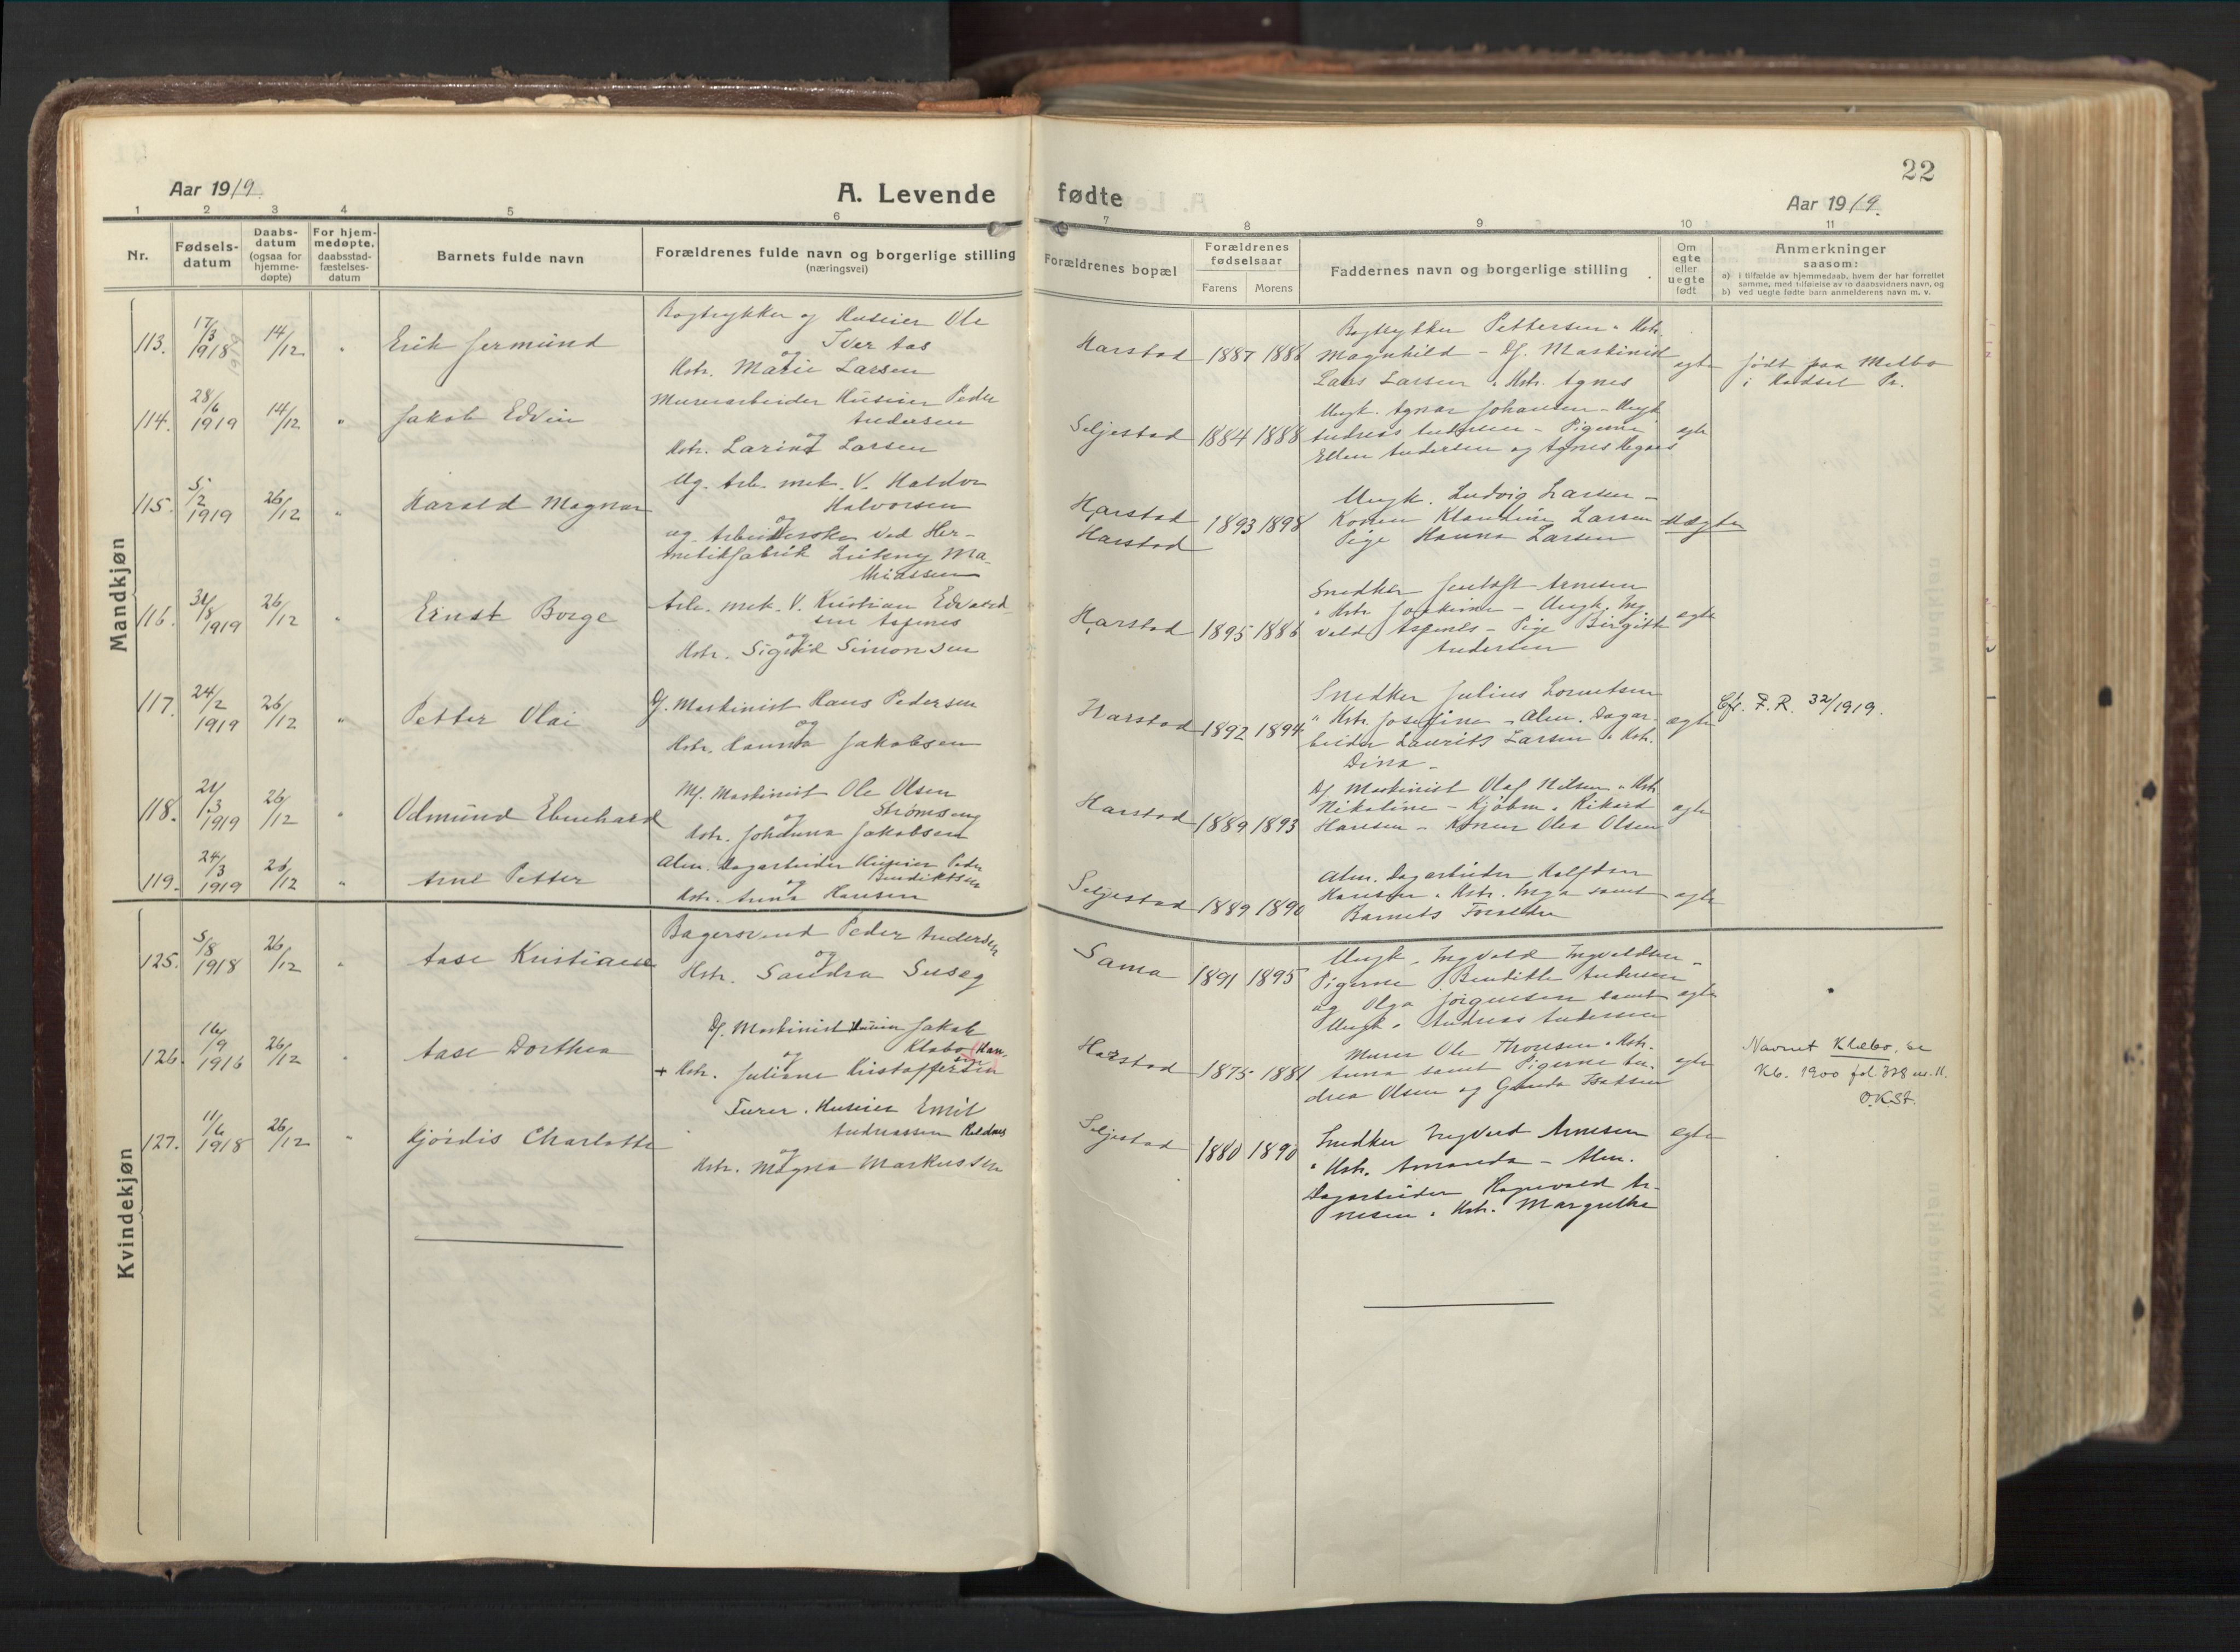 22
Aar 1919.
A. Levende fødte
Aar 1919.
1 2 3 4 5 6 7 8 9 10 11
Nr.
Fødsels-
datum
Daabs-
datum
(ogsaa for
hjemme-
døpte)
For hjem-
medøpte.
daabsstad-
fæstelses-
datum
Barnets fulde navn
Forældrenes fulde navn og borgerlige stilling
(næringsvei)
Forældrenes bopæl
Forældrenes
fødselsaar
Farens Morens
Faddernes navn og borgerlige stilling
Om
egte
eller
uegte
født
Anmerkninger
saasom:
a) i tilfælde av hjemmedaab, hvem der har forrettet
samme, med tilføielse av to daabsvidners navn, og
b) ved uegte fødte barn anmelderens navn m. v.
Mandkjøn
113. 17/3 1918 14/12 " Erik Jermund
Bogtrykker og Huseier Ole
Iver Aas
og
Hstr. Marie Larsen
Harstad 1887 1886
Bogtrykker Pettersen " Hstr.
Magnhild – Df. Maskinist
Lars Larsen " Hstr. Agnes
egte
født paa Melbo
i Hadsel Pr.
114. 28/6 1919 14/12 " Jakob Edvin
Murerarbeider Huseier Peder
Andersen
og
Hstr. Larina Larsen
Seljestad 1884 1888
Ungk. Agnar Johansen – Ungk
Andreas Andersen – Pigerne
Ellen Andersen og Agnes
egte
115. 5/2 1919 26/12 " Harald Magnar
Ug. Arb. mek. V. Haldor
Halvorsen
og
ug. Arbeiderske ved Her-
metikfabrik Ma-
thiassen
Harstad
Harstad
1893 1898
Ungk. Ludvig Larsen –
Konen Klaudine Larsen
Pige Hanna Larsen
uægte
116. 31/8 1919 26/12 " Ernst Borge
Arb. mek. V. Kristian Edvard-
sen Aspenes
og
Hstr. Sigrid Simonsen
Harstad 1895 1886
Snedker Arnesen
" Hstr. Joakime – Ungk. Ing-
vald Aspenes – Pige Birgitte
Andersen
egte
117. 24/2 1919 26/12 " Petter Olai
Df. Maskinist Hans Pedersen
og
Hstr. Hanna Jakobsen
Harstad 1892 1894
Snedker Julius Lorentsen
" Hstr. Josefine – Alm. Dagar-
beider Laurits Larsen " Hstr.
Dina –
egte
Cfr. F. R. 32/1919.
118. 21/3 1919 26/12 " Odmund Ebenhard
Mf. Maskinist Ole Olsen
Strømseng
og
Hstr. Johanna Jakobsen
Harstad 1889 1893
Df. Maskinist Olaf Nilsen " Hstr
Nikoline – Kjøbm. Rikard
Hansen – Konen Olea Olsen
egte
119. 24/3 1919 26/12 " Arne Petter
Alm. Dagarbeider Huseier Peder
Bendiktsen
og
Hstr. Anna Hansen
Seljestad 1889 1890
Alm. Dagarbeider Halfdan
Hansen " Hstr. Inga samt
Barnets Forældre
egte
Kvindekjøn
125. 5/8 1918 26/12 " Aase Kristiane
Bagersvend Peder Andersen
og
Hstr. Sandra Suseg
Sama 1891 1895
Ungk. Ingvald Ingvaldsen –
Pigerne Bendikte Andersen
og Olga Jörgensen samt
Ungk. Andreas Andersen
egte
126. 16/9 1916 26/12 " Aase Dorthea
Df. Maskinist Huseier Jakob
Klæbo (Han-
sen)
og
+ Hstr. Juliane Kristoffersen
Harstad 1875 1881
Murer Ole Thonsen " Hstr.
Anna samt Pigerne An-
drea Olsen og Gunda Isaksen
egte
Navnet Klæbo, se
Kb. 1900 fol. 328 nr. 11.
O.K.St.
127. 11/6 1918 26/12 " Hjördis Charlotte
Furer. Huseier Emil
Andreassen
og
Hstr. Magna Markussen
Seljestad 1880 1890
Snedker Ingvard Arnesen
" Hstr. Amanda – Alm.
Dagarbeider Ragnvald Ar-
nesen " Hstr. Margrethe
egte